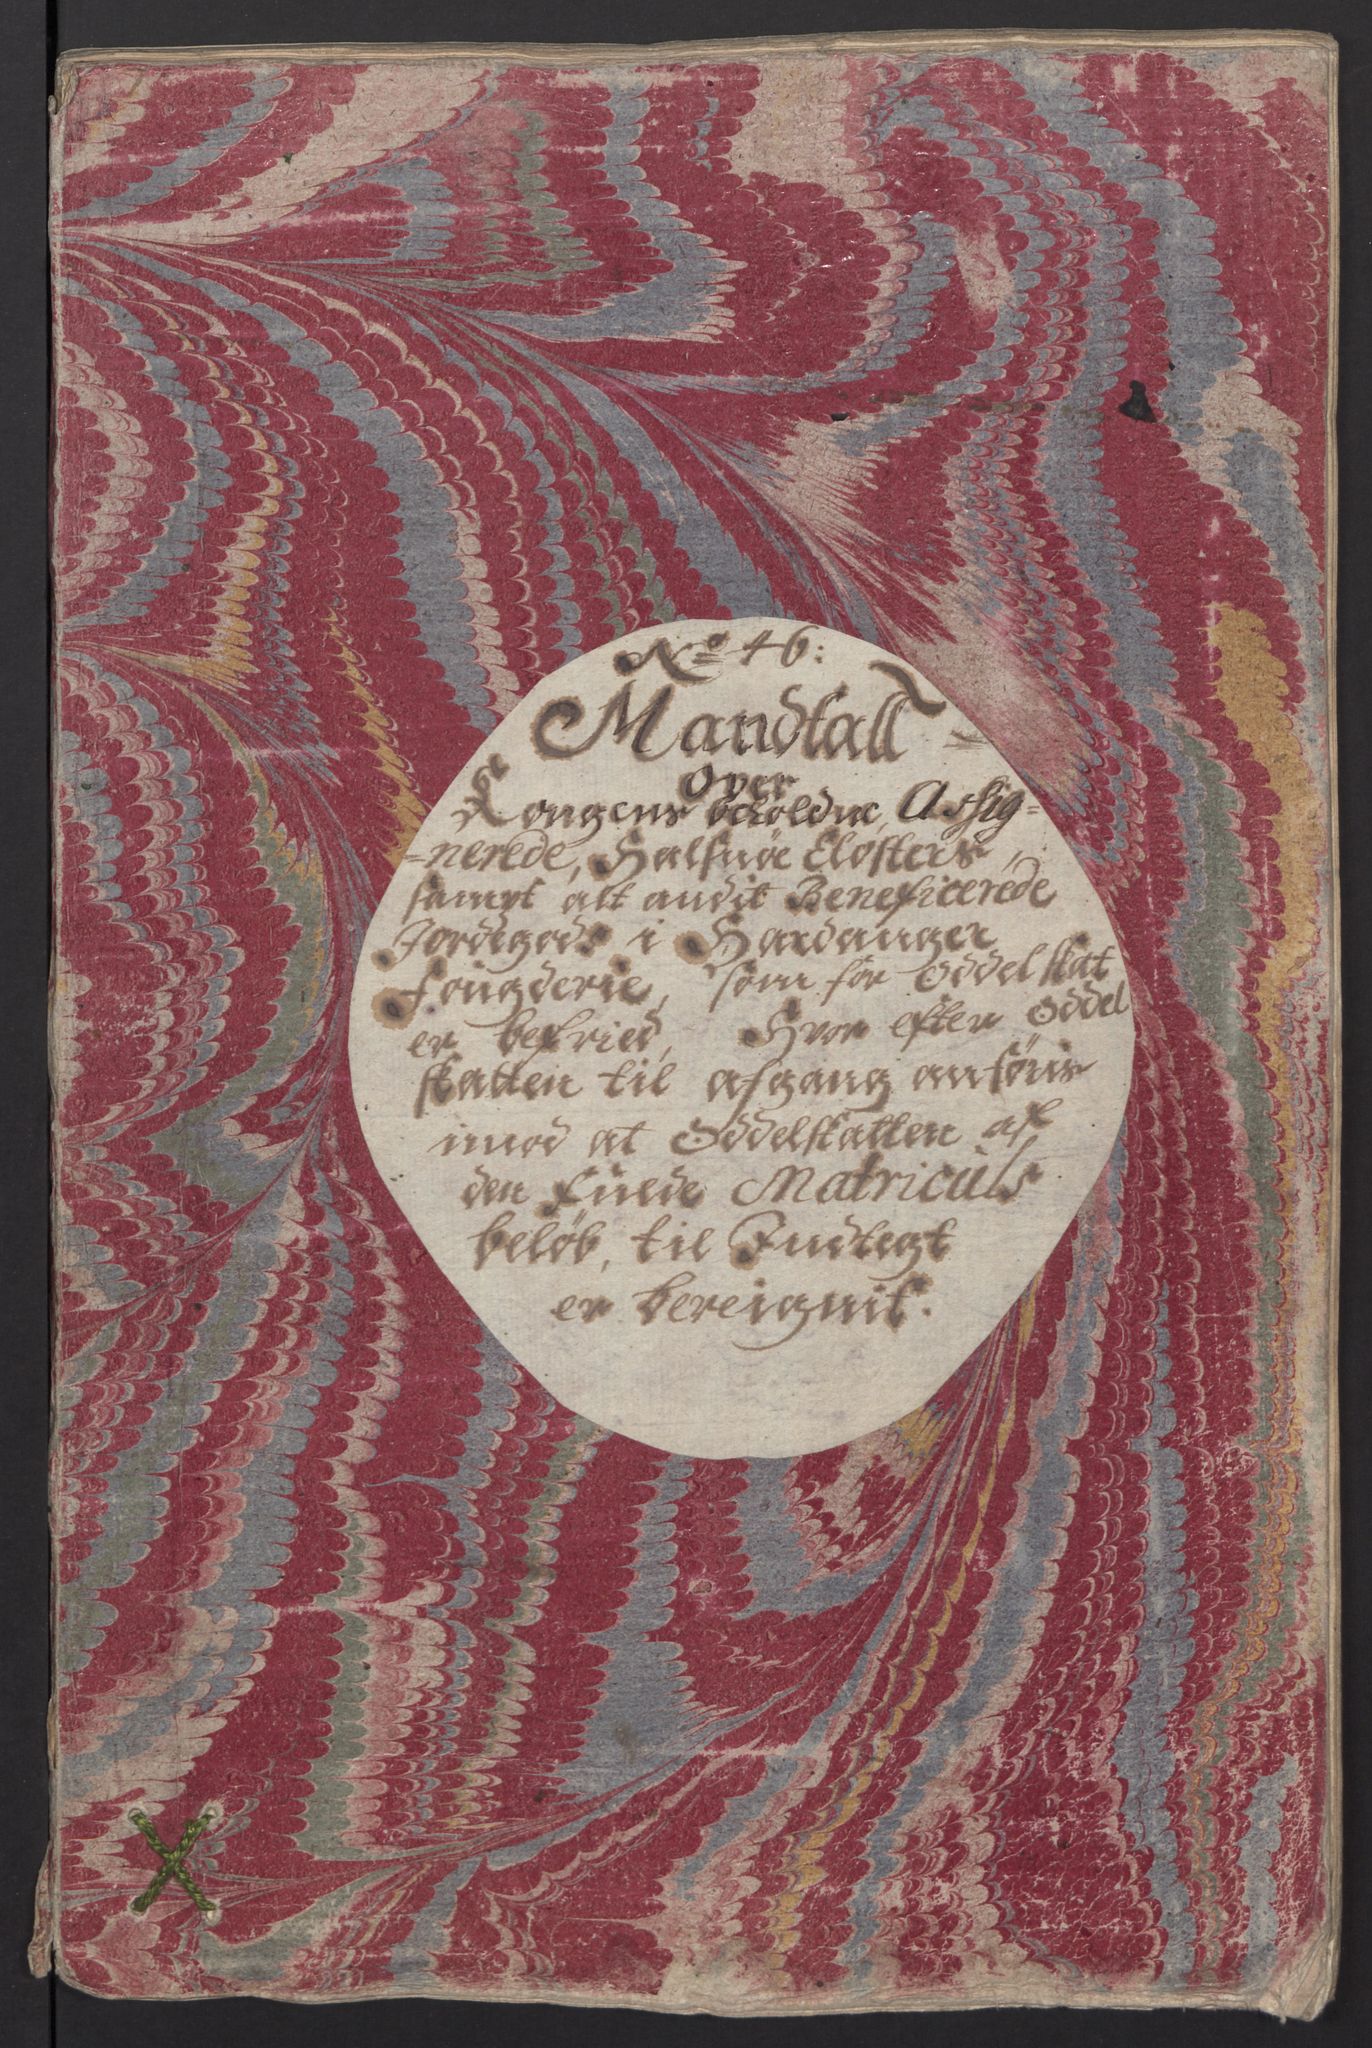 No 46:
Mandtall
Over
Kongens beholdne, Assig=
=nerede, Halsnøe Closters,
sampt alt andit Beneficerede
Jordegods i Hardanger
fougderie, som for Oddelskat
er befried, Hvor efter Oddel
skatten til afgang anføris
imod at Oddelskatten af
den fulde Matriculs
beløb, til Indtegt
er bereignit.